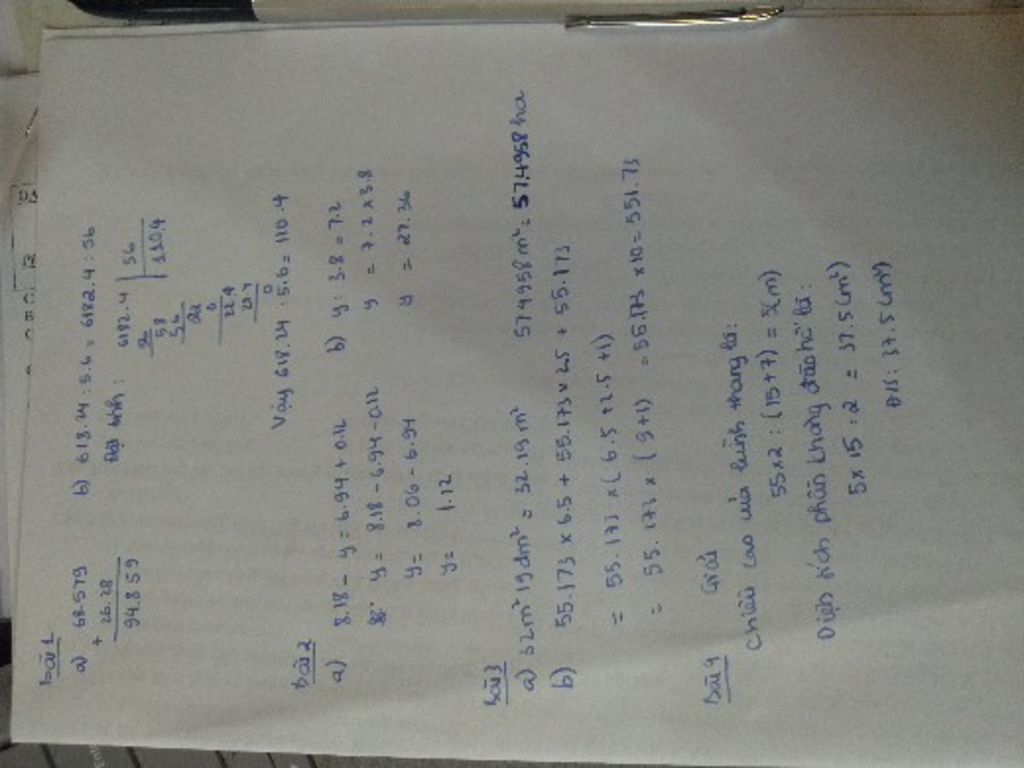 Bài 1
a) 68.579
+
26.28
94.859
b) 618.24 : 5.6 = 6182.4 : 56
Đặt tính :
6182.4 56
1104
58
56
22
0
22.4
22.4
0
Vậy 618.24 : 5.6 = 110.4
Bài 2
a) 8.18 - y = 6.94 + 0.12
y = 8.18 - 6.94 - 0.12
y = 8.06 - 6.94
y = 1.12
b) y : 3.8 = 7.2
y = 7.2 x 3.8
y = 27.36
Bài 3
a) 32m² 19dm² = 32.19m² 574958m² = 57.4958 ha
b) 55.173 x 6.5 + 55.173 x 2.5 + 55.173
= 55.173 x ( 6.5 + 2.5 + 1)
= 55.173 x ( 9 + 1) = 55.173 x 10 = 551.73
Bài 4 Giải
Chiều cao của hình thang là:
55 x 2 : (15 + 7) = 5(m)
Diện tích phần không đào hồ là :
5 x 15 : 2 = 37.5 (m²)
Đ/S : 37.5 (m²)